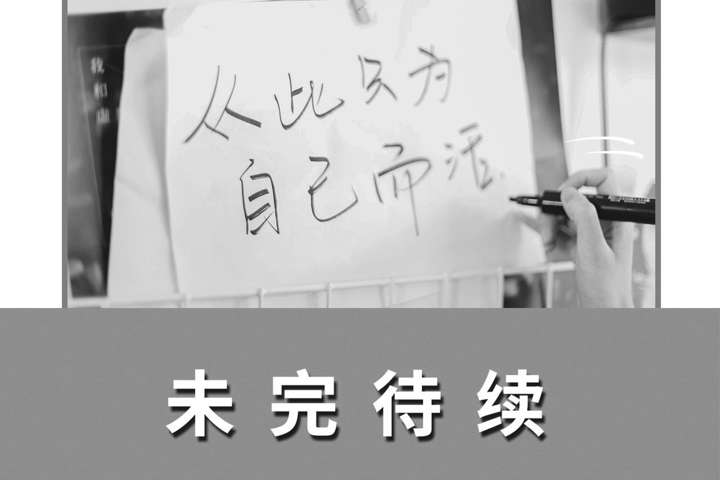 我
和
从此只为
自己而活.
未完待续